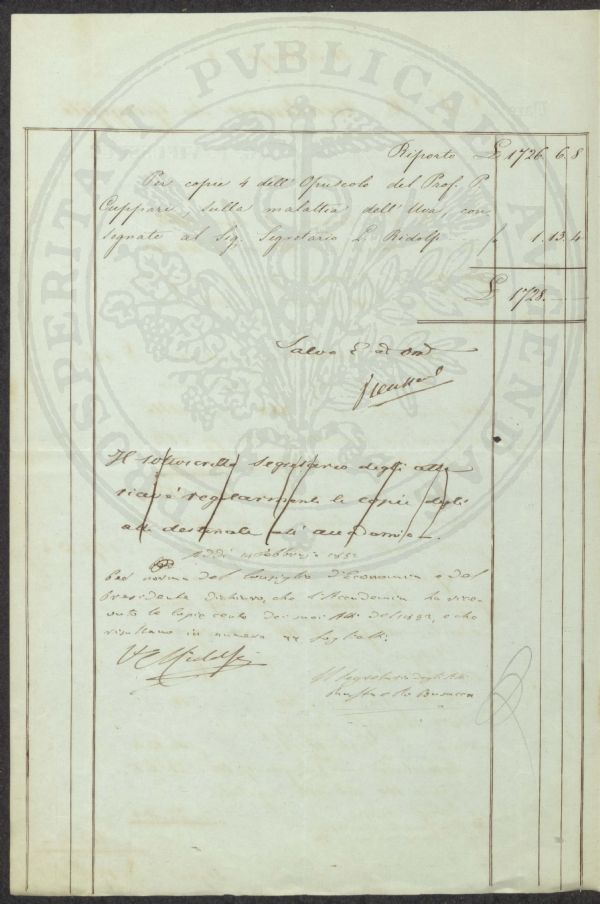 PROSPERITATI PUBLICAE AUGENDAE
Riporto £ 1726. 6. 8
Per copie 4 dell'Opuscolo del Prof. P.
Cuppari, sulla malattia dell'Uva, con
segnate al Sig. Segretario L. Ridolfi " 1. 13. 4
£ 1728. —
Salvo E. ed Om.
Il sottoscritto segretario degli atti
ricevè regolarmente le copie degli
atti destinate all'accademia.
Addì Febbraio 185
Per norma del Consiglio d'Economia e del
Presidente dichiaro, che l'Accademia ha rice-
vuto le copie cento dei suoi Atti del 1852, e che
risultano in numero fogli
Ridolfi
Il Segretario degli Atti
Busacca